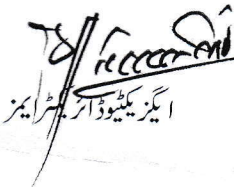 ایگزیکٹیو ڈائریکٹر ایمز